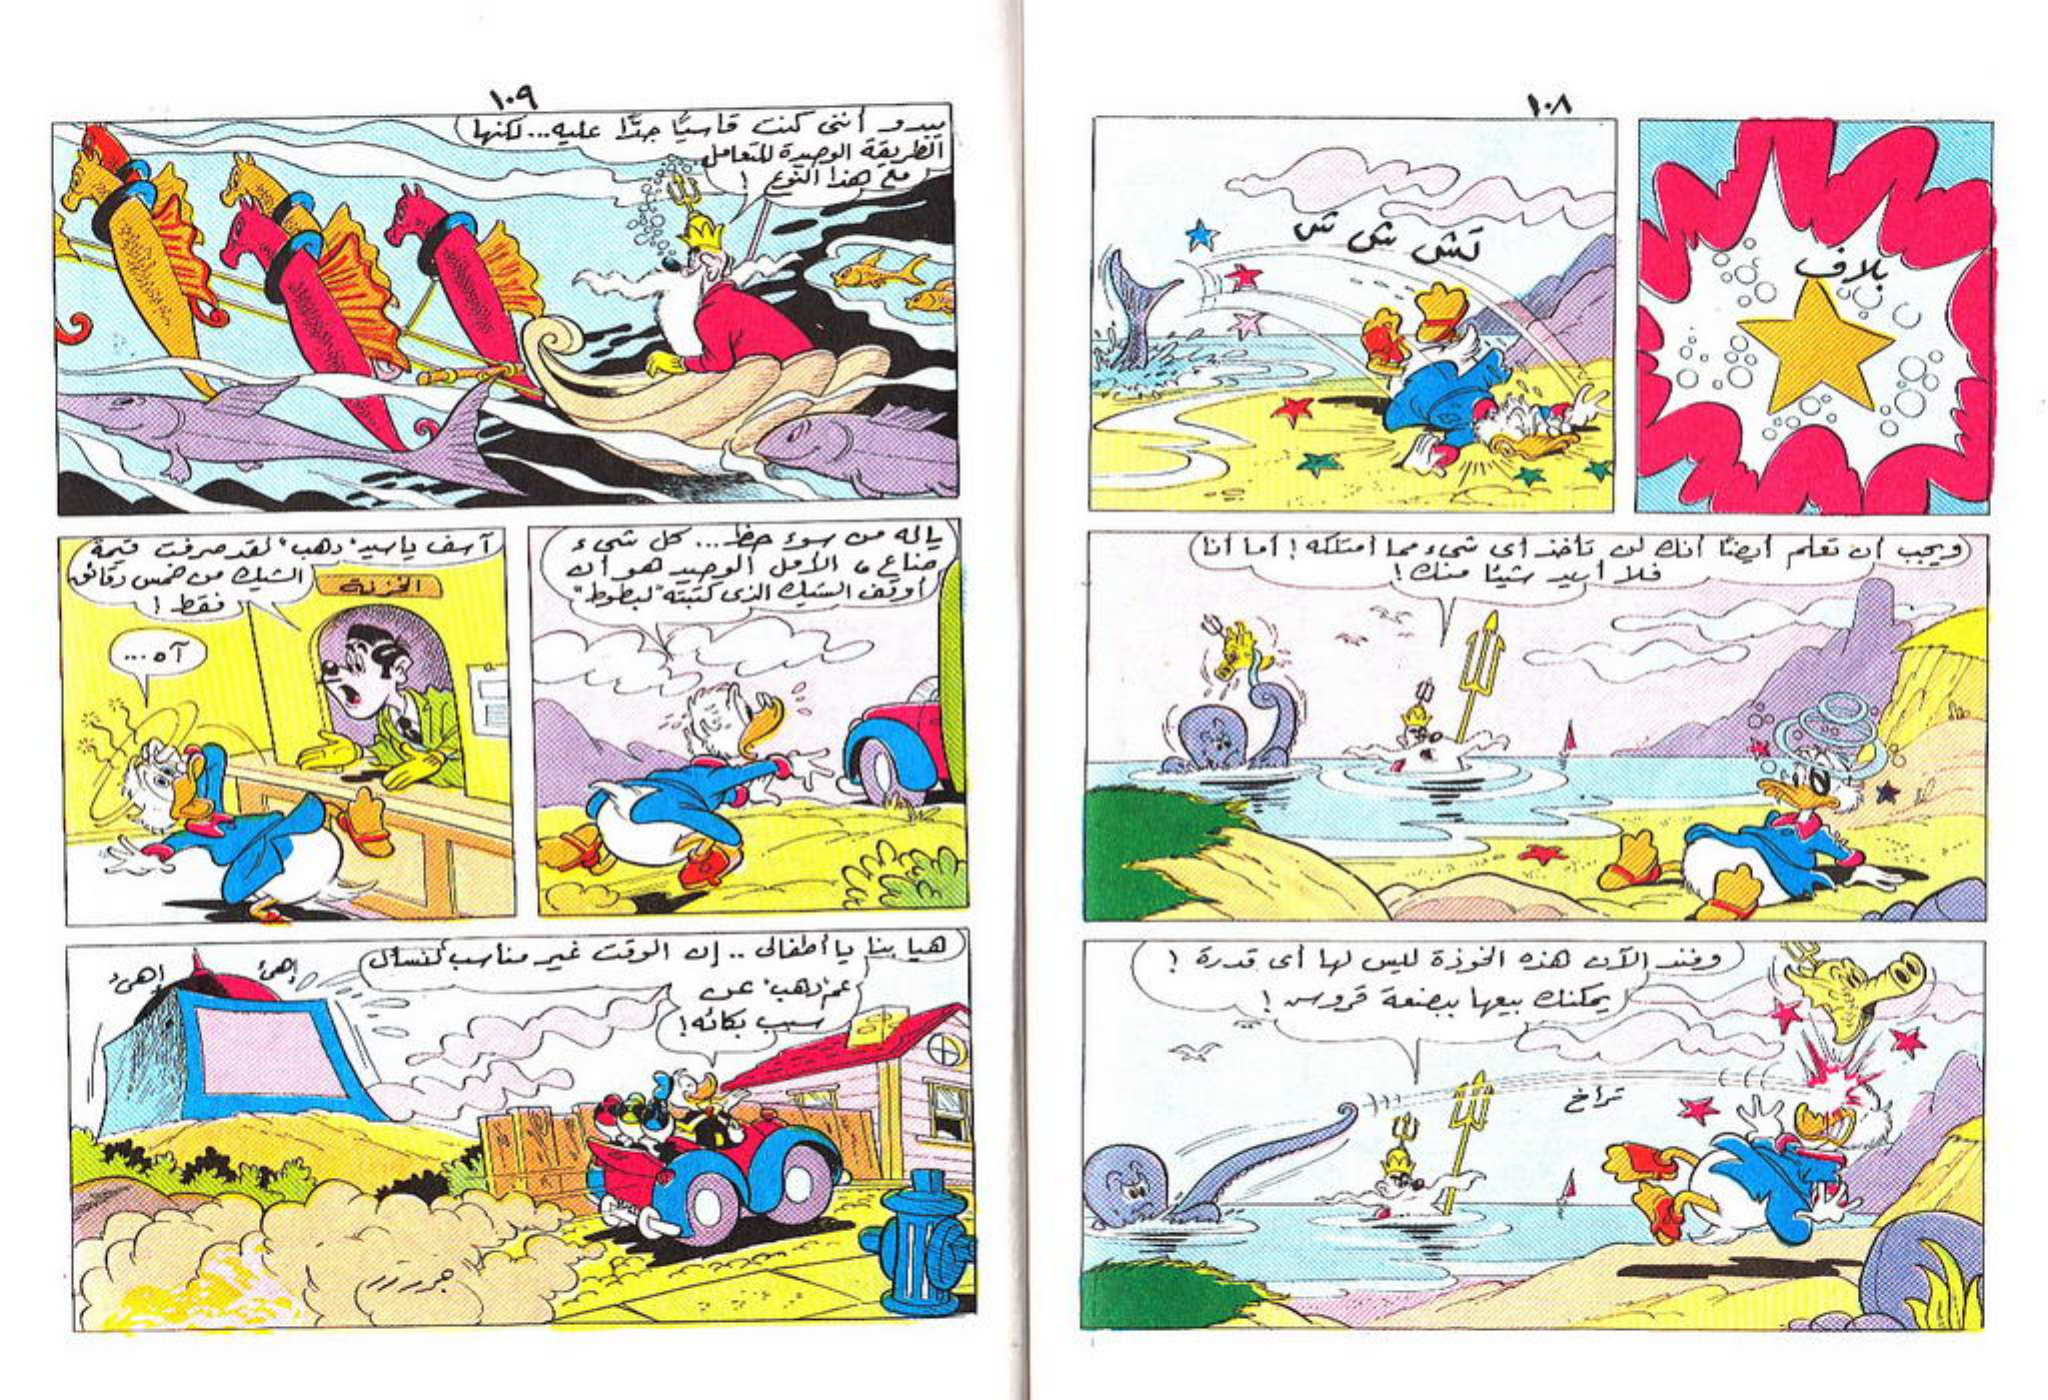 ١٠٨
بلاف
تش ش ش
ويجب أن تعلم أيضًا أنك لن تأخذ أى شىء مما أمتلكه ! أما أنا
فلا أريد شيئًا منك !
وخذ الآن هذه الخوذة ليس لها أى قدرة !
يمكنك بيعها ببضعة قروس !
تراخ
١٠٩
يبدو أننى كنت قاسيًا جدًّا عليه... لكنها
الطريقة الوحيدة للتعامل
مع هذا النوع !
ياله من سوء حظ... كل شىء
ضاع ، الأمل الوحيد هو أن
أوقف الشيك الذى كتبته "لبطوط"
آسف ياسيد "دهب" لقد صرفت قيمة
الشيك من خمس دقائق
فقط !
الخزنة
آه ...
هيا بنا يا أطفالى .. إن الوقت غير مناسب لنسأل
عم "دهب" عن
سبب بكائه !
إهئ
إهئ